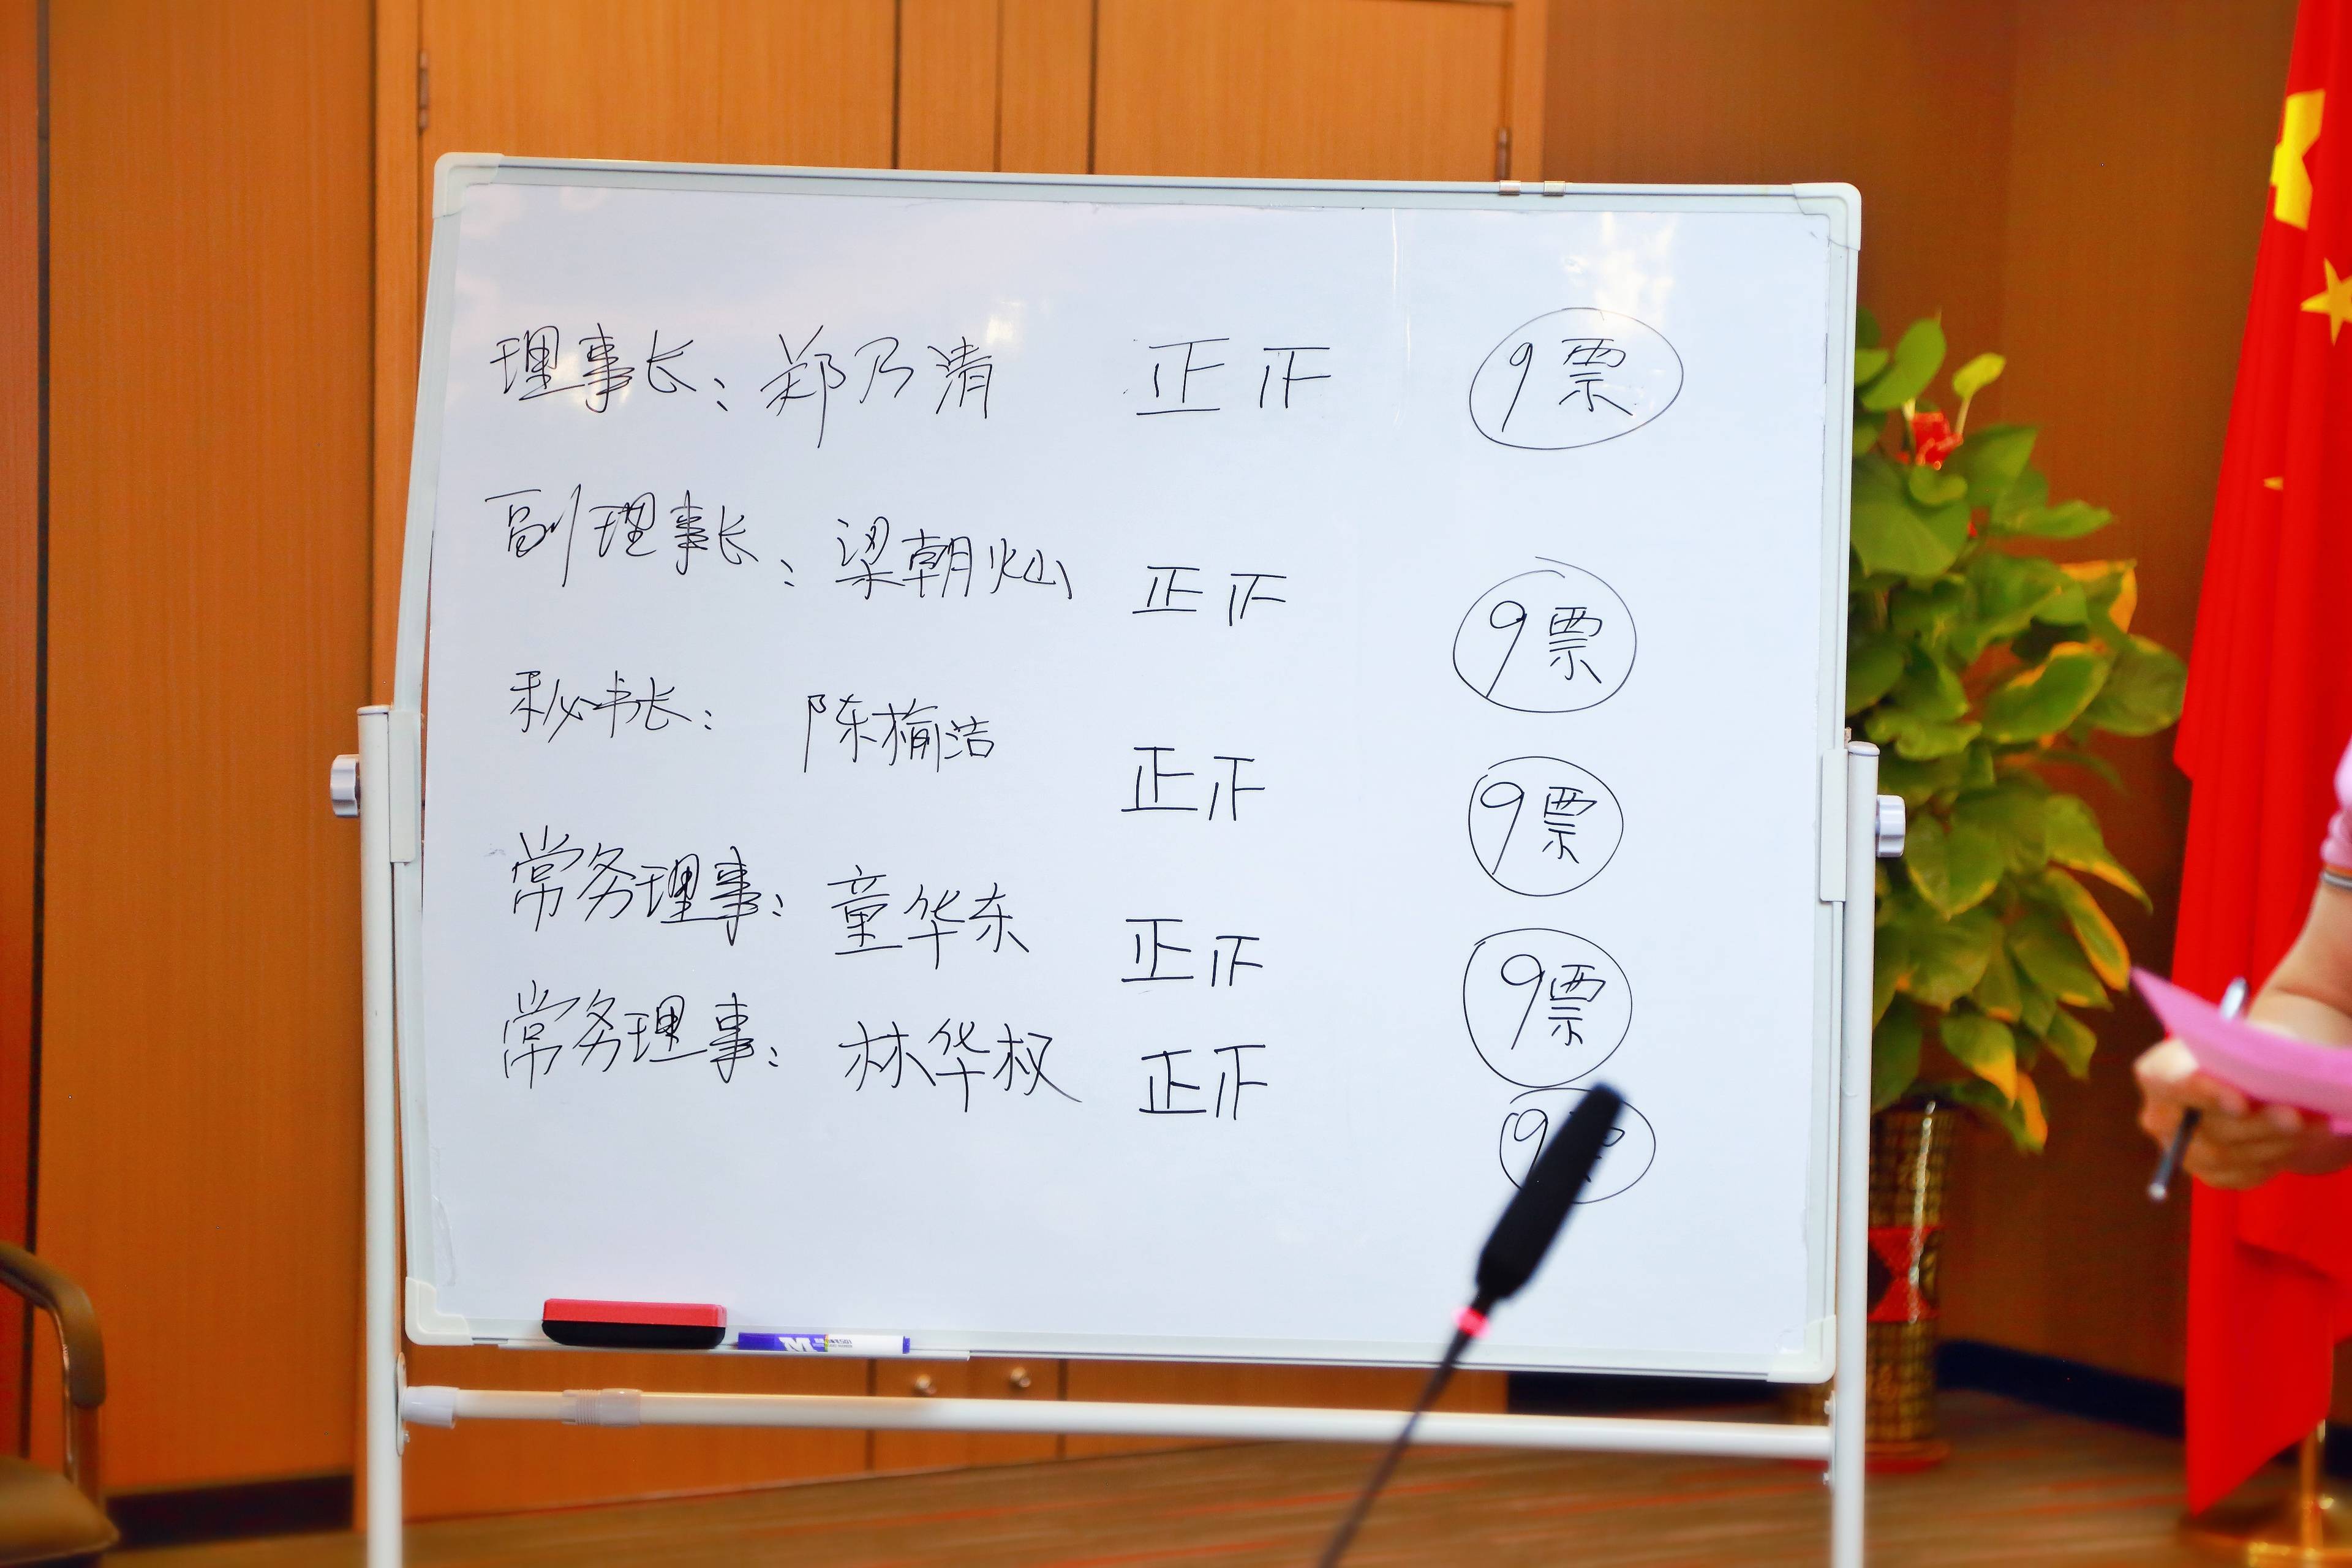 理事长：郑乃清 正 正 9票
副理事长：梁朝灿 正 正 9票
秘书长：陈楠洁 正 正 9票
常务理事：童华东 正 正 9票
常务理事：林华权 正 正 9